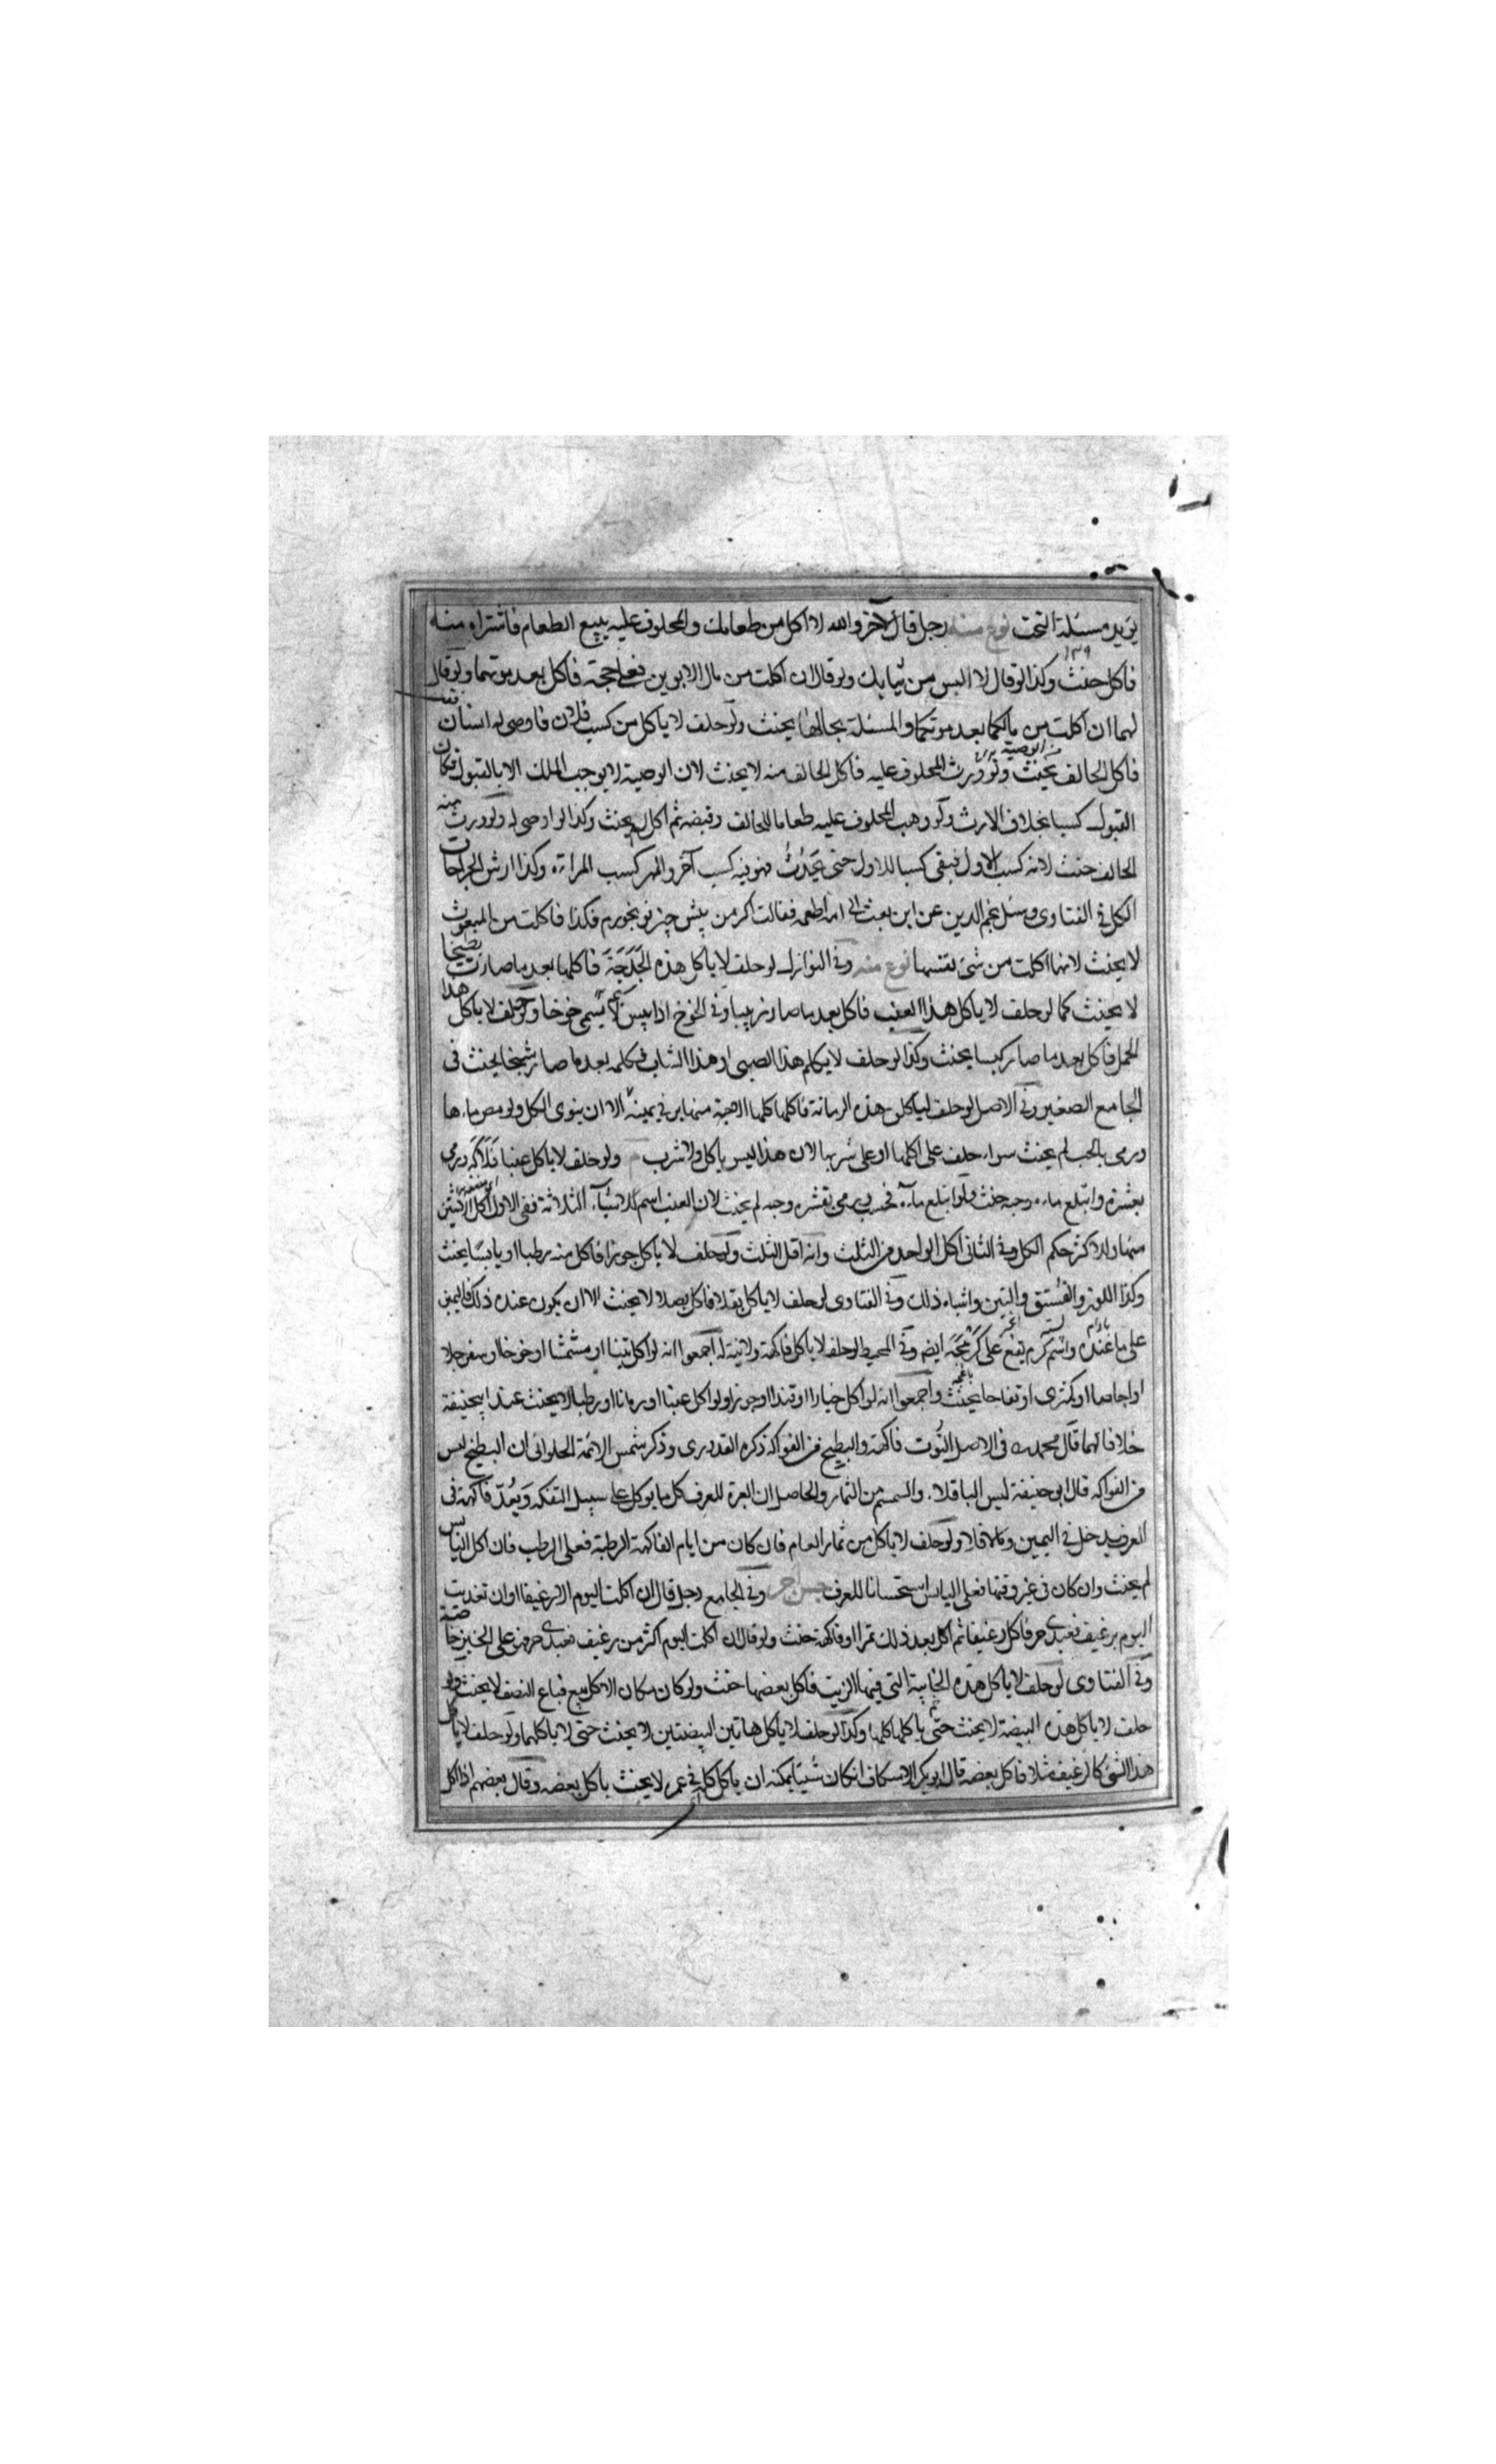 يريد مسئلة التخت نوع منه رجل قال لآخر والله لا آكل من طعامك والمحلوف عليه يبيع الطعام فاشتراه منه
فاكل حنث وكذا لو قال لا البس من ثيابك ولو قال ان اكلت من مال الابوين فعلى حجة فاكل بعد موتهما ولو قال
لهما ان اكلت من مالكما بعد موتكما والمسئلة بحالها يحنث ولو حلف لا ياكل من كسب فلان فاوصى له انسان
فاكل الحالف يحنث ولو ورث المحلوف عليه فاكل الحالف منه لا يحنث لان الوصية لا يوجب الملك الا بالقبول فكان
القبول كسبا بخلاف الارث ولو وهب المحلوف عليه طعاما للحالف وقبضه ثم اكل لم يحنث وكذا لو اوصى له ولو ورث منه
الحالف حنث لانه كسب الاول فبقى كسبا للاول حتى يحدث فيه كسب آخر والمهر كسب المراة وكذا ارش الجراحات
الكل في الفتاوى وسئل نجم الدين عن ابن بعث الى امه اطعمة فقالت اكر من پيش چيز تو بخورم فكذا فاكلت من المبعوث
لا يحنث لانها اكلت من شئ نفسها نوع منه وفي النوازل لو حلف لا ياكل هذه الحدجة فاكلها بعد ما صارت بطيخا
لا يحنث كما لو حلف لا ياكل هذا العنب فاكل بعد ما صار زبيبا وفي الخوخ اذا يبس يسمى خوخا ولو حلف لا ياكل هذا
الحمل فاكل بعد ما صار كبسا يحنث وكذا لو حلف لا يكلم هذا الصبى او هذا الشاب فكلمه بعد ما صار شيخا يحنث في
الجامع الصغير وفي الاصل لو حلف لياكلن هذه الرمانة فاكلها كلها الا حبة منها بر في يمينه الا ان ينوى الكل ولو مص ماءها
ورمى بالحب لم يحنث سواء حلف على اكلها او على شربها لان هذا ليس باكل ولا شرب ولو حلف لا ياكل عنبا فلاكه ورمى
بقشره وابتلع ماءه وحبه حنث ولو ابتلع ماءه فحسب ورمى بقشره وحبه لم يحنث لان العنب اسم للاشياء الثلاثة ففى الاول اكل الاثنين
منها وللاكثر حكم الكل وفي الثانى اكل الواحد من الثلث وانه اقل الثلث ولو حلف لا ياكل جوزا فاكل منه رطبا او يابسا يحنث
وكذا اللوز والفستق والتين واشباه ذلك وفي الفتاوى لو حلف لا ياكل بقلا فاكل بصلا لا يحنث الا ان يكون عنده ذلك فاليمين
على ما عنده واسم كرم يقع على ايضا وفي المحيط لو حلف لا ياكل فاكهة ولا نية له اجمعوا انه لو اكل تينا او مشمشا او خوخا او سفرجلا
او اجاصا او كمثرى او تفاحا يحنث واجمعوا انه لو اكل خيارا او قثدا او جوزا ولو اكل عنبا او رمانا او رطبا لا يحنث عند ابيحنيفة
خلافا لهما قال محمد في الاصل التوت فاكهة والبطيخ من الفواكه ذكره القدورى وذكر شمس الائمة الحلوانى ان البطيخ ليس
من الفواكه قال ابو حنيفة ليس الباقلاء والسمسم من الثمار والحاصل ان العبرة للعرف كل ما يوكل على سبيل التفكه ويعد فاكهة في
العرف يدخل في اليمين وما لا فلا ولو حلف لا ياكل من ثمار العام فان كان من ايام الفاكهة الرطبة فعلى الرطب فان اكل اليابس
لم يحنث وان كان في غير وقتها فعلى اليابس استحسانا للعرف جنس آخر وفي الجامع رجل قال ان اكلت اليوم الا رغيفا او ان تغديت
اليوم برغيف فعبدى حر فاكل رغيفا ثم اكل بعد ذلك تمرا او فاكهة حنث ولو قال ان اكلت اليوم اكثر من رغيف فعبدى حر فهو على الخبز خاصة
وفي الفتاوى لو حلف لا ياكل هذه الخابية التي فيها الزيت فاكل بعضها حنث ولو كان مكان الاكل بيع فباع النصف لا يحنث ولو
حلف لا ياكل هذه البيضة لا يحنث حتى ياكلها كلها وكذا لو حلف لا ياكل هاتين البيضتين لا يحنث حتى لا ياكلهما ولو حلف لا ياكل
هذا الشئ كالرغيف مثلا فاكل بعضه قال ابو بكر الاسكاف ان كان شيئا يمكنه ان ياكل كله في عمره لا يحنث باكل بعضه وقال بعضهم اذا اكل